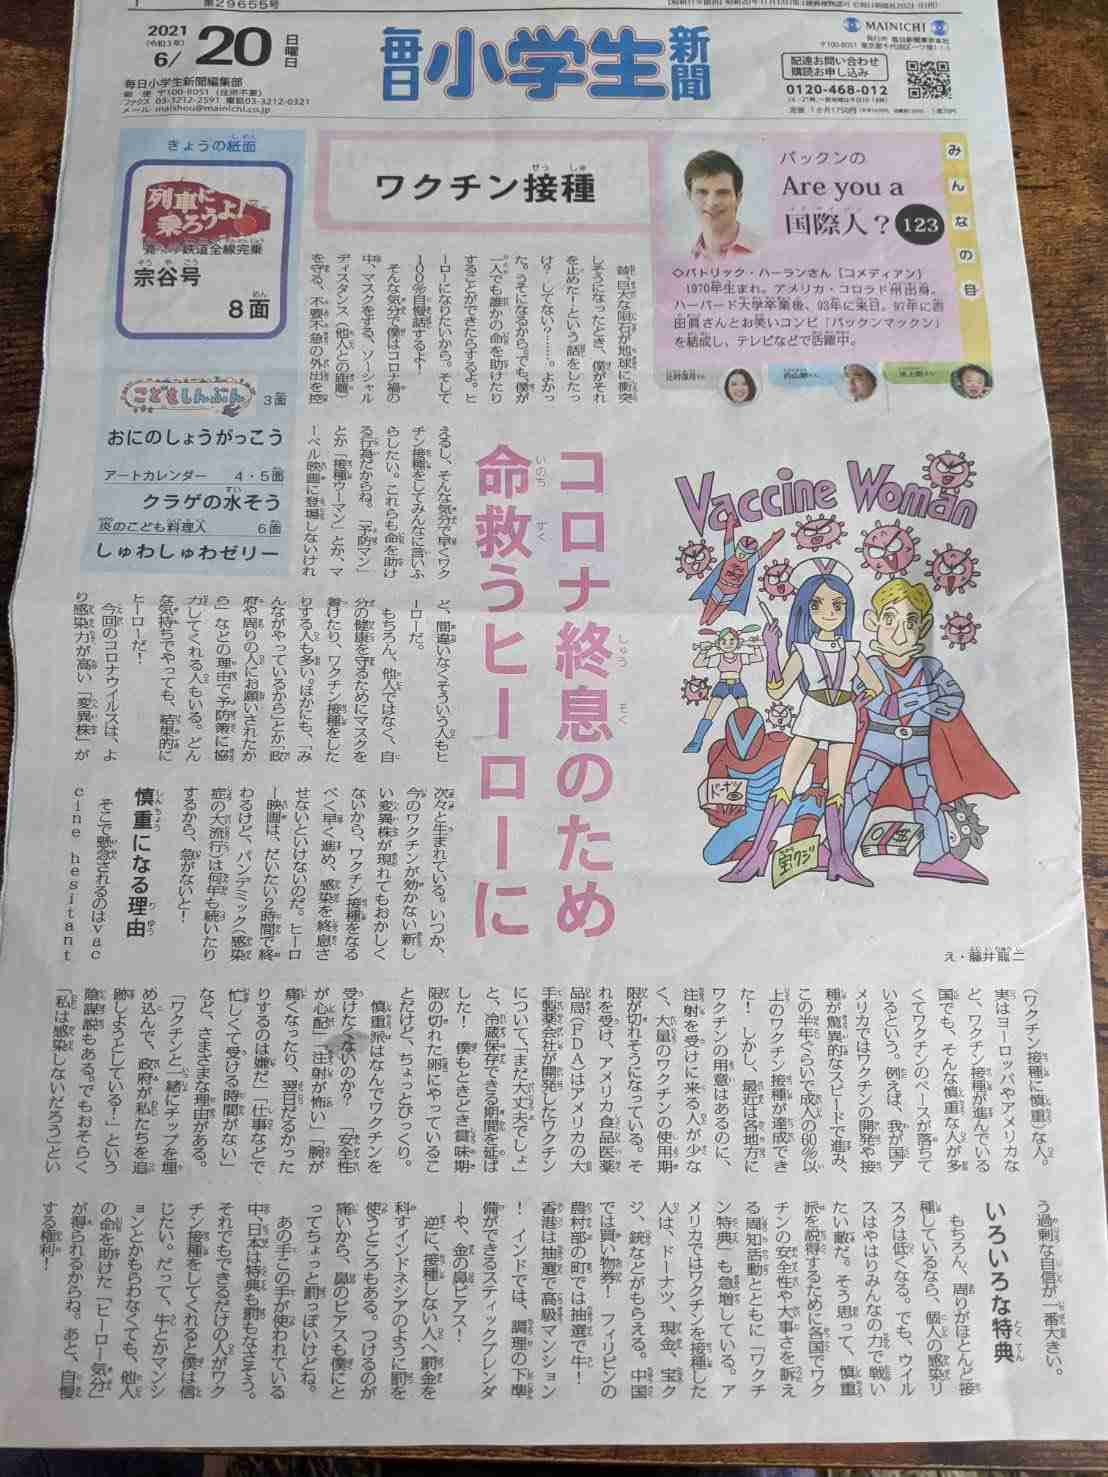 第29655号
2021
(令和3年)
6/20
日曜日
毎日小学生新聞編集部
郵便 〒100-8051 (住所不要)
ファクス 03-3212-2591 電話03-3212-0321
メール maishou@mainichi.co.jp
毎日小学生新聞
MAINICHI
発行所 毎日新聞東京本社
〒100-8051 東京都千代田区一ツ橋1-1-1
配達お問い合わせ
購読お申し込み
0120-468-012
定価 1か月1750円
きょうの紙面
列車に
乗ろうよ!
鉄道全線完乗
宗谷号
8面
こどもしんぶん 3面
おにのしょうがっこう
アートカレンダー 4・5面
クラゲの水そう
炎のこども料理人 6面
しゅわしゅわゼリー
ワクチン接種
みんなの目
パックンの
Are you a
国際人? 123
◇パトリック・ハーランさん〔コメディアン〕
1970年生まれ。アメリカ・コロラド州出身。
ハーバード大学卒業後、93年に来日。97年に吉
田眞さんとお笑いコンビ「パックンマックン」
を結成し、テレビなどで活躍中。
コロナ終息のため
命救うヒーローに
Vaccine Woman
ドーナツ
宝クジ
$
え・藤井龍二
昔、巨大な隕石が地球に衝突
しそうになったとき、僕がそれ
を止めた!という話をしたっ
け?してない?……。よかっ
た。うそになるから。でも、僕が
一人でも誰かの命を助けたり
することができたらするよ。ヒ
ーローになりたいから。そして
100%自慢話するよ!
そんな気分で、僕はコロナ禍の
中、マスクをする、ソーシャル
ディスタンス(他人との距離)
を守る、不要不急の外出を控
えるし、そんな気分で早くワク
チン接種をしてみんなに言いふ
らしたい。これらも命を助け
る行為だからね。「予防マン」
とか「接種ウーマン」とか、マ
ーベル映画に登場しないけれ
ど、間違いなくそういう人もヒ
ーローだ。
もちろん、他人ではなく、自
分の健康を守るためにマスクを
着けたり、ワクチン接種をした
りする人も多い。ほかにも、「み
んながやっているから」とか「政
府や周りの人にお願いされたか
ら」などの理由で予防策に協
力してくれる人もいる。どん
な気持ちでやっても、結果的に
ヒーローだ!
今回のコロナウイルスは、よ
り感染力が高い「変異株」が
次々と生まれている。いつか、
今のワクチンが効かない新し
い変異株が現れてもおかしく
ないから、ワクチン接種をなる
べく早く進め、感染を終息さ
せないといけないのだ。ヒーロ
ー映画は、だいたい2時間で終
わるけど、パンデミック(感染
症の大流行)は何年も続いたり
するから、急がないと!
慎重になる理由
そこで懸念されるのはvac
cine hesitant
(ワクチン接種に慎重)な人。
実はヨーロッパやアメリカな
ど、ワクチン接種が進んでいる
国でも、そんな慎重な人が多
くてワクチンのペースが落ちて
いるという。例えば、我が国ア
メリカではワクチンの開発や接
種が驚異的なスピードで進み、
この半年ぐらいで成人の60%以
上のワクチン接種が達成でき
た!しかし、最近は各地方に
ワクチンの用意はあるのに、
注射を受けに来る人が少な
く、大量のワクチンの使用期
限が切れそうになっている。そ
れを受け、アメリカ食品医薬
品局(FDA)はアメリカの大
手製薬会社が開発したワクチン
について、「まだ大丈夫でしょ」
と、冷蔵保存できる期間を延ば
した!僕もときどき賞味期
限の切れた卵にやっているこ
とだけど、ちょっとびっくり。
慎重派はなんでワクチンを
受けたくないのか?「安全性
が心配」「注射が怖い」「腕が
痛くなったり、翌日だるかった
りするのは嫌だ」「仕事などで
忙しくて受ける時間がない」
など、さまざまな理由がある。
「ワクチンと一緒にチップを埋
め込んで、政府が私たちを追
跡しようとしている!」という
陰謀説もある。でもおそらく
「私は感染しないだろう」とい
う過剰な自信が一番大きい。
いろいろな特典
もちろん、周りがほとんど接
種しているなら、個人の感染リ
スクは低くなる。でも、ウイル
スはやはりみんなの力で戦い
たい敵だ。そう思って、慎重
派を説得するために各国でワク
チンの安全性や大事さを訴え
る周知活動とともに「ワクチ
ン特典」も急増している。ア
メリカではワクチンを接種した
人は、ドーナツ、現金、宝ク
ジ、銃などがもらえる。中国
では買い物券!フィリピンの
農村部の町では抽選で牛!
香港は抽選で高級マンション
!インドでは、調理の下準
備ができるスティックブレンダ
ーや、金の鼻ピアス!
逆に、接種しない人へ罰金を
科すインドネシアのように罰を
使うところもある。つけるのが
痛いから、鼻のピアスも僕にと
ってちょっと罰っぽいけどね。
あの手この手が使われている
中、日本は特典も罰もなさそう。
それでもできるだけの人がワク
チン接種をしてくれると僕は信
じたい。だって、牛とかマンシ
ョンとかもらわなくても、他人
の命を助けた「ヒーロー気分」
が得られるからね。あと、自慢
する権利!